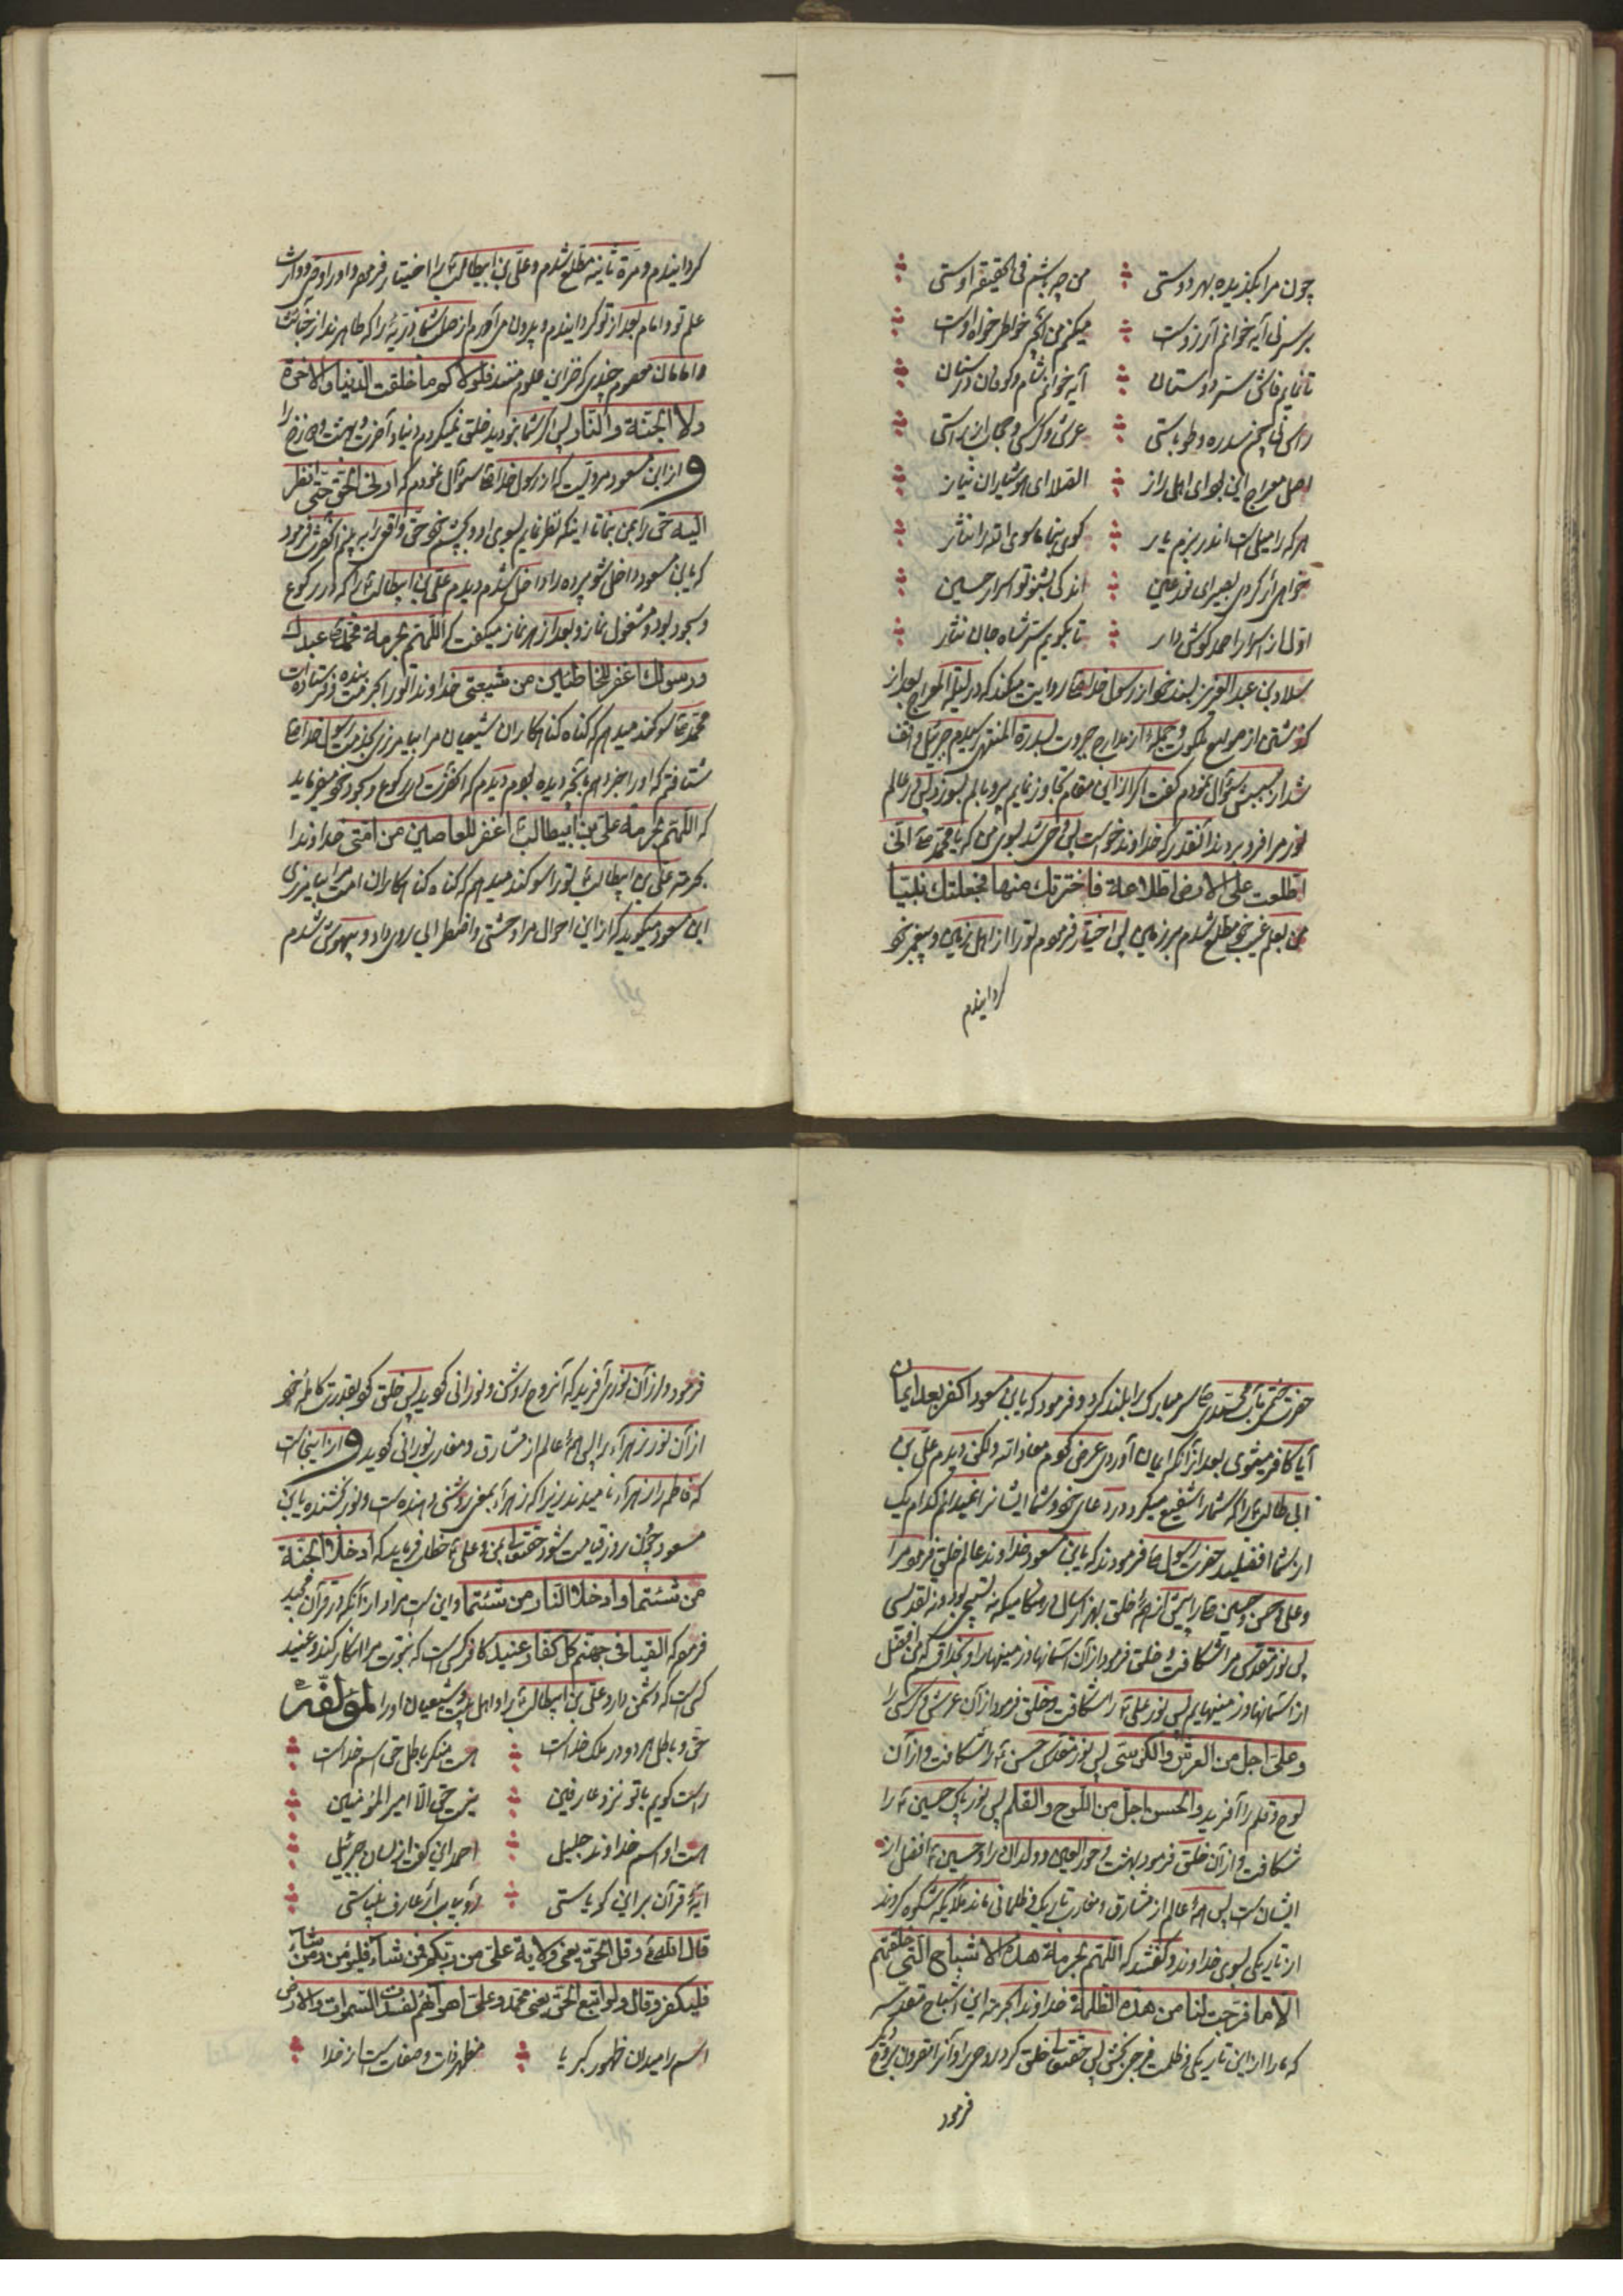 چون مرا بگزیده بهر دوستی من چه باشم فی الحقیقه اوستی
بر سر نی آیه خوانم آرزوست میکنم من آنچه خواطر خواه اوست
تا نمایم فاش ستر دوستان آیه خوانم شام و کوفان درستان
راس نی سدره و طوباستی عرش و کرسی و
اصل معراج این بود ای اهل راز الصلا ای هوشیاران نیاز
هر که را میل است اندر بزم یار گوی بنما ماسوی الله را نثار
خواهی ار گردی بصیر ای نور عین اندکی بشنو تو اسرار حسین
اول از اسرار احمد گوش دار تا بگویم ستر شاه جان نثار
بن عبدالعزیز بسند خود از رسول خدا ص روایت میکند که در لیلة المعراج بعد از
گذشتن از ملکوت و از مدارج جبروت بسدرة المنتهی رسیدم جبرئیل واقف
شد از سببش سئوال نمودم گفت اگر از این مقام تجاوز نمایم پر و بالم بسوزد پس در عالم
نور مرا فرو بردند آنقدر که خداوند خواست پس وحی شد بسوی من که یا محمد ص انّی
اطلعت علی الارض اطلاعة فاخترتك منها فجعلتك نبیّا
من بعلم غیب خود مطلع شدم بر زمین پس اختیار فرمودم تو را از اهل زمین و پیغمبر خود
گردانیدم
گردانیدم و مرة ثانیه مطلع شدم و علی بن ابیطالب را اختیار فرمودم و او را وصی و وارث
علم تو و امام بعد از تو گردانیدم و بیرون می آورم از صلب شما ذریّه را که طاهرند از
و امامان معصوم چندی که خزاین علوم منند فلولاکم ما خلقت الدنیا و الاخرة
و لا الجنة و النار پس اگر شما نبودید خلق نمیکردم دنیا و آخرت و بهشت و دوزخ را
و از ابن مسعود مرویست که از رسول خدا ص سئوال نمودم که ارنی الحق حتی انظر
الیه حق را بمن بنما تا اینکه نظر نمایم بسوی او و بچشم خود حق واقعی را به بینم آنحضرت فرمود
که یابن مسعود داخل شو پرده را داخل شدم دیدم علی بن ابیطالب را که در رکوع
و سجود بود و مشغول نماز و بعد از هر نماز میگفت که اللهم بحرمة محمد ص عبدك
و رسولك اغفر للخاطئین من شیعتی خداوندا تو را بحرمت بنده و فرستاده ات
محمد ص سوگند میدهم که گناه گناهکاران شیعیان مرا بیامرزی بخدمت رسول خدا ص
شتافتم که او را خبر دهم بآنچه دیده بودم دیدم که آنحضرت در رکوع و سجود خود میفرماید
که اللهم بحرمة علی بن ابیطالب اغفر للعاصین من امّتی خداوندا
بحرمت علی بن ابیطالب تو را سوگند میدهم که گناه گناهکاران امت مرا بیامرزی
ابن مسعود میگوید که از این احوال مرا وحشتی و اضطرابی روی داد و بیهوش شدم
حضرت ختمی مآب محمدی ص سر مبارک را بلند کرد و فرمود که یابن مسعود اکفر بعد ایمان
آیا کافر میشوی بعد از آنکه ایمان آوردی عرض کردم معاذ الله ولکن دیدم علی بن
ابی طالب را که شما را شفیع میکرد و در دعای خود و شما ایشانرا نمیدانم کدام یک
از شما افضلید حضرت رسول ص فرمودند که یابن مسعود خداوند عالم خلق فرمود مرا
و علی و حسن و حسین را پیش از همه خلق بهزار سال در هنگامیکه نه تسبیحی بود و نه تقدیسی
پس نور مقدس مرا شکافت و خلق فرمود از آن آسمانها و زمینها را و بخدا قسم که من افضل
از آسمانها و زمینهایم پس نور علی را شکافت و خلق فرمود از آن عرش و کرسی را
و علی اجل من العرش و الکرسی پس نور مقدس حسن را شکافت و از آن
لوح و قلم را آفرید و الحسن اجل من اللوح و القلم پس نور پاک حسین را
شکافت و از آن خلق فرمود بهشت و حور العین و ولدان را و حسین افضل از
ایشان است پس همهٔ عالم از مشارق و مغارب تاریک و ظلمانی ماند ملائکه شکوه کردند
از تاریکی بسوی خداوند و گفتند که اللهم بحرمة هذه الاشباح التی خلقتهم
الا ما فرجت لنا من هذه الظلمة خداوندا بحرمت این اشباح مقدسه
که ما را از این تاریکی و ظلمت فرجی بخش پس حقتعالی خلق کرد روحی را و آنرا مقرون بروح دیگر
فرمود
فرمود و از آن نوری آفرید که آنروح روشن و نورانی گردید پس خلق کرد بقدرت کامله خود
از آن نور زهرا را پس همهٔ عالم از مشارق و مغارب نورانی گردید و از اینجا است
که فاطمه را زهرا نامیدند زیرا که زهرا بمعنی روشنی دهنده است و نور بخشنده یابن
مسعود چون روز قیامت شود حقتعالی بمن و علی خطاب فرماید که ادخلا الجنة
من شئتما و ادخلا النار من شئتما و این است مراد از آنکه در قرآن مجید
فرموده که القیا فی جهنم کل کفار عنید کافر کسی است که نبوّت مرا انکار کند و عنید
کسی است که دشمن دارد علی بن ابیطالب را و اهل بیت و شیعیان او را لمؤلفه
حق و باطل هر دو در ملک خداست هست منکر باطل حق اسم خداست
راست گویم با تو نزد عارفین نیست حق الا امیر المؤمنین
هست او اسم خداوند جلیل احمد این گفت از لسان جبرئیل
آیهٔ قرآن بر این گویاستی رو بیاب ار عارف بیناستی
قال الله و قل الحق یعنی ولایة علی من ربکم فمن شاء فلیؤمن و من شاء
فلیکفر و قال و لو اتبع الحق یعنی محمد و علی اهوائهم لفسدت السموات و الارض
اسم را میدان ظهور کبریا مظهر ذات و صفات است از خدا